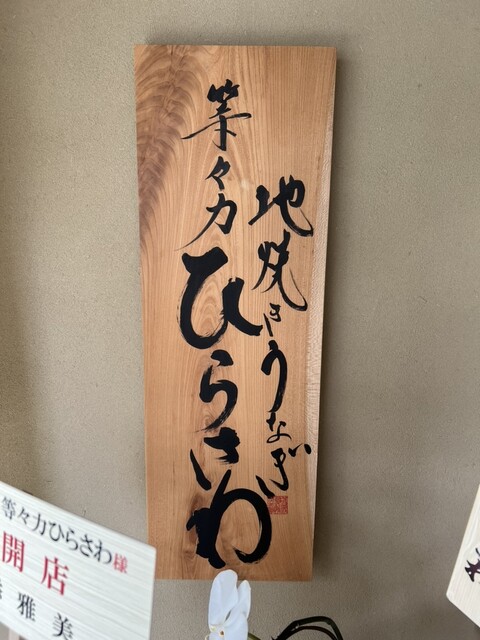 地焼きうなぎ
等々力
ひらさわ
等々力ひらさわ様
開店
雅美